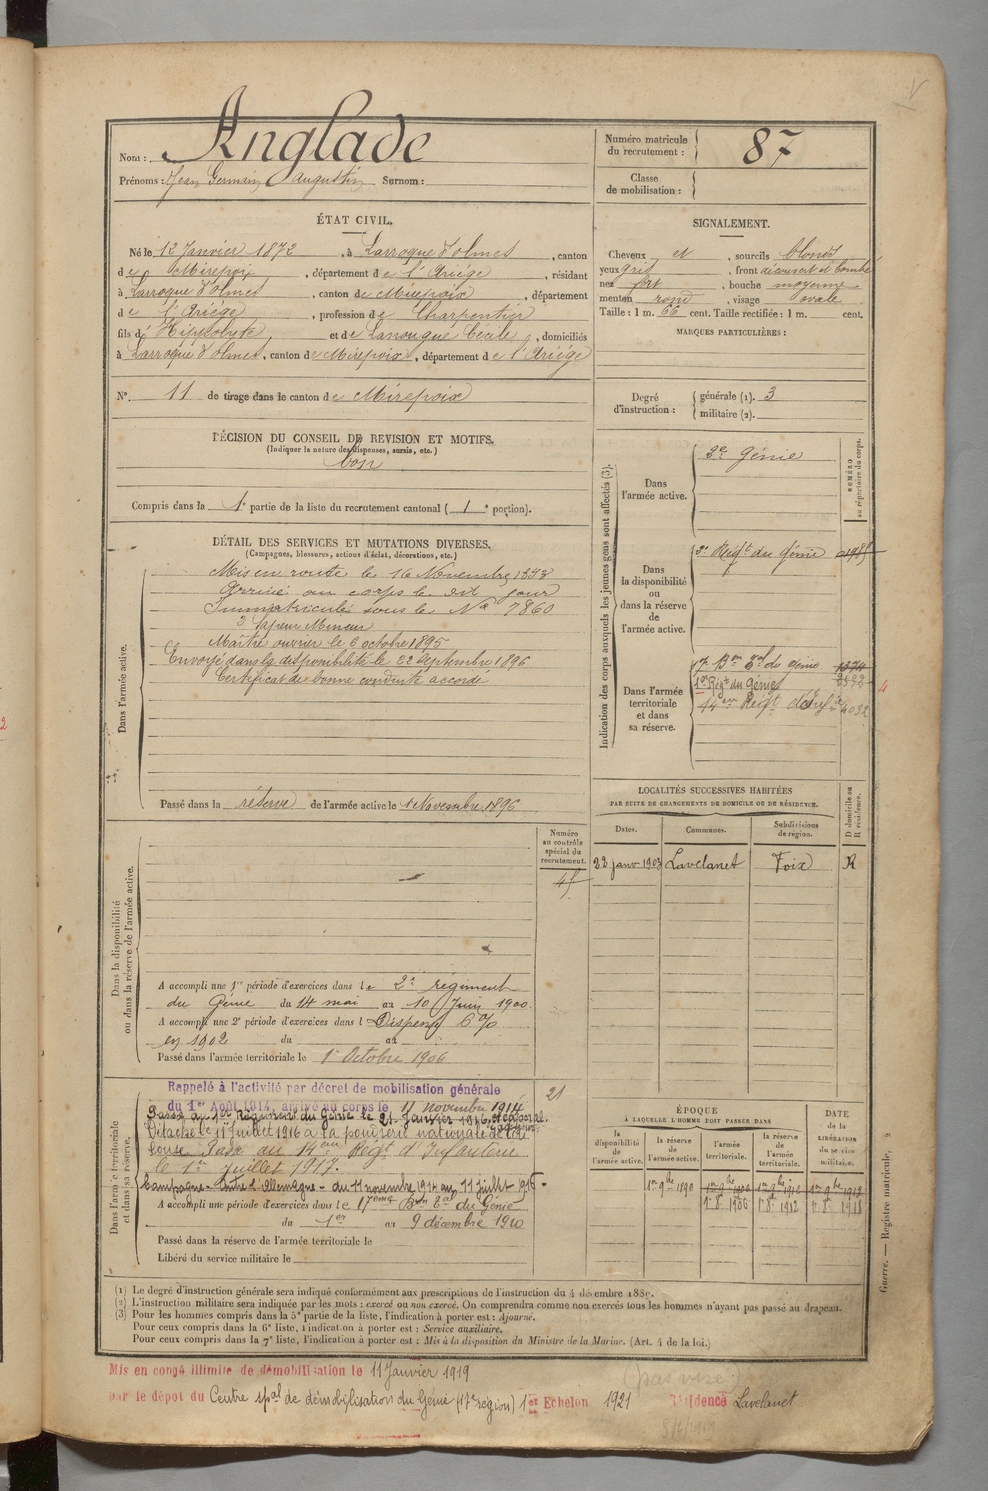 Nom : Anglade
Prénoms : Jean Germain Augustin Surnom :
Numéro matricule du recrutement : 87
Classe de mobilisation :
ÉTAT CIVIL.
Né le 12 Janvier 1872, à Larroque d'olmes, canton
de Mirepoix, département de l'Ariège, résidant
à Larroque d'olmes, canton de Mirepoix, département
de l'Ariège, profession de Charpentier
fils d' Hippolyte et de Lanougué Cécile, domiciliés
à Larroque d'olmes, canton de Mirepoix, département de l'Ariège
SIGNALEMENT.
Cheveux et, sourcils blonds
yeux gris, front découvert et bombé
nez fort, bouche moyenne
menton rond, visage ovale
Taille : 1 m. 66 cent. Taille rectifiée : 1 m. cent.
MARQUES PARTICULIÈRES :
N°. 11 de tirage dans le canton de Mirepoix
Degré d'instruction : générale (1). 3
militaire (2).
DÉCISION DU CONSEIL DE REVISION ET MOTIFS.
(Indiquer la nature des dispenses, sursis, etc.)
bon
Compris dans la 1e partie de la liste du recrutement cantonal ( 1e portion).
DÉTAIL DES SERVICES ET MUTATIONS DIVERSES.
(Campagnes, blessures, actions d'éclat, décorations, etc.)
Dans l'armée active.
Mis en route le 16 Novembre 1893
Arrivé au corps le dit jour
Immatriculé sous le N° 7860
Sapeur Mineur
Maître ouvrier le 6 octobre 1895
Envoyé dans la disponibilité le 22 Septembre 1896
Certificat de bonne conduite accordé
Passé dans la réserve de l'armée active le 1 Novembre 1896
Indication des corps auxquels les jeunes gens sont affectés (3).
NUMÉRO au répertoire du corps.
Dans l'armée active.
2e Génie
Dans la disponibilité ou dans la réserve de l'armée active.
Régt du Génie
Dans l'armée territoriale et dans sa réserve.
17e Bon Tal du génie
1er Régt du Génie
14em Régt d'Infie 4032
LOCALITÉS SUCCESSIVES HABITÉES
PAR SUITE DE CHANGEMENTS DE DOMICILE OU DE RÉSIDENCE.
Dates. Communes. Subdivisions de région. D domicile ou R résidence.
22 janv 1903 Lavelanet Foix R
Numéro au contrôle spécial du recrutement.
Dans la disponibilité ou dans la réserve de l'armée active.
A accompli une 1re période d'exercices dans le 2e régiment
du Génie du 14 mai au 10 Juin 1900.
A accompli une 2e période d'exercices dans l Dispensé 6 %
en 1902 du au
Passé dans l'armée territoriale le 1er Octobre 1906
Dans l'armée territoriale et dans sa réserve.
21
Rappelé à l'activité par décret de mobilisation générale
du 1er Août 1914, arrivé au corps le 11 novembre 1914
Passé au 1er Régiment du Génie le 21 Janvier 1916.
Détaché le 11 Juillet 1916 à la poudrerie nationale de Toulouse
Passé au 14eme Régt d'Infanterie
le 1er Juillet 1917.
Campagne - Contre l'Allemagne - du 11 novembre 1914 au 11 Juillet 1916 -
A accompli une période d'exercices dans le 17eme Bon Tal du Génie
du 1er au 9 décembre 1910
Passé dans la réserve de l'armée territoriale le
Libéré du service militaire le
ÉPOQUE
À LAQUELLE L'HOMME DOIT PASSER DANS
la disponibilité de l'armée active. la réserve de l'armée active. l'armée territoriale. la réserve de l'armée territoriale. DATE de la LIBÉRATION du service militaire.
1er 9bre 1906 1er 9bre 1912
1er 8 1906 1er 8 1912 1er 8 1918
Guerre. — Registre matricule,
(1) Le degré d'instruction générale sera indiqué conformément aux prescriptions de l'instruction du 4 décembre 1889.
(2) L'instruction militaire sera indiquée par les mots : exercé ou non exercé. On comprendra comme non exercés tous les hommes n'ayant pas passé au drapeau.
(3) Pour les hommes compris dans la 5e partie de la liste, l'indication à porter est : Ajourné.
Pour ceux compris dans la 6e liste, l'indication à porter est : Service auxiliaire.
Pour ceux compris dans la 7e liste, l'indication à porter est : Mis à la disposition du Ministre de la Marine. (Art. 4 de la loi.)
Mis en congé illimité de démobilisation le 11 Janvier 1919
par le dépôt du Centre spal de démobilisation du Génie (17e région) 1er Echelon 1921 Résidence Lavelanet
(pas visé)